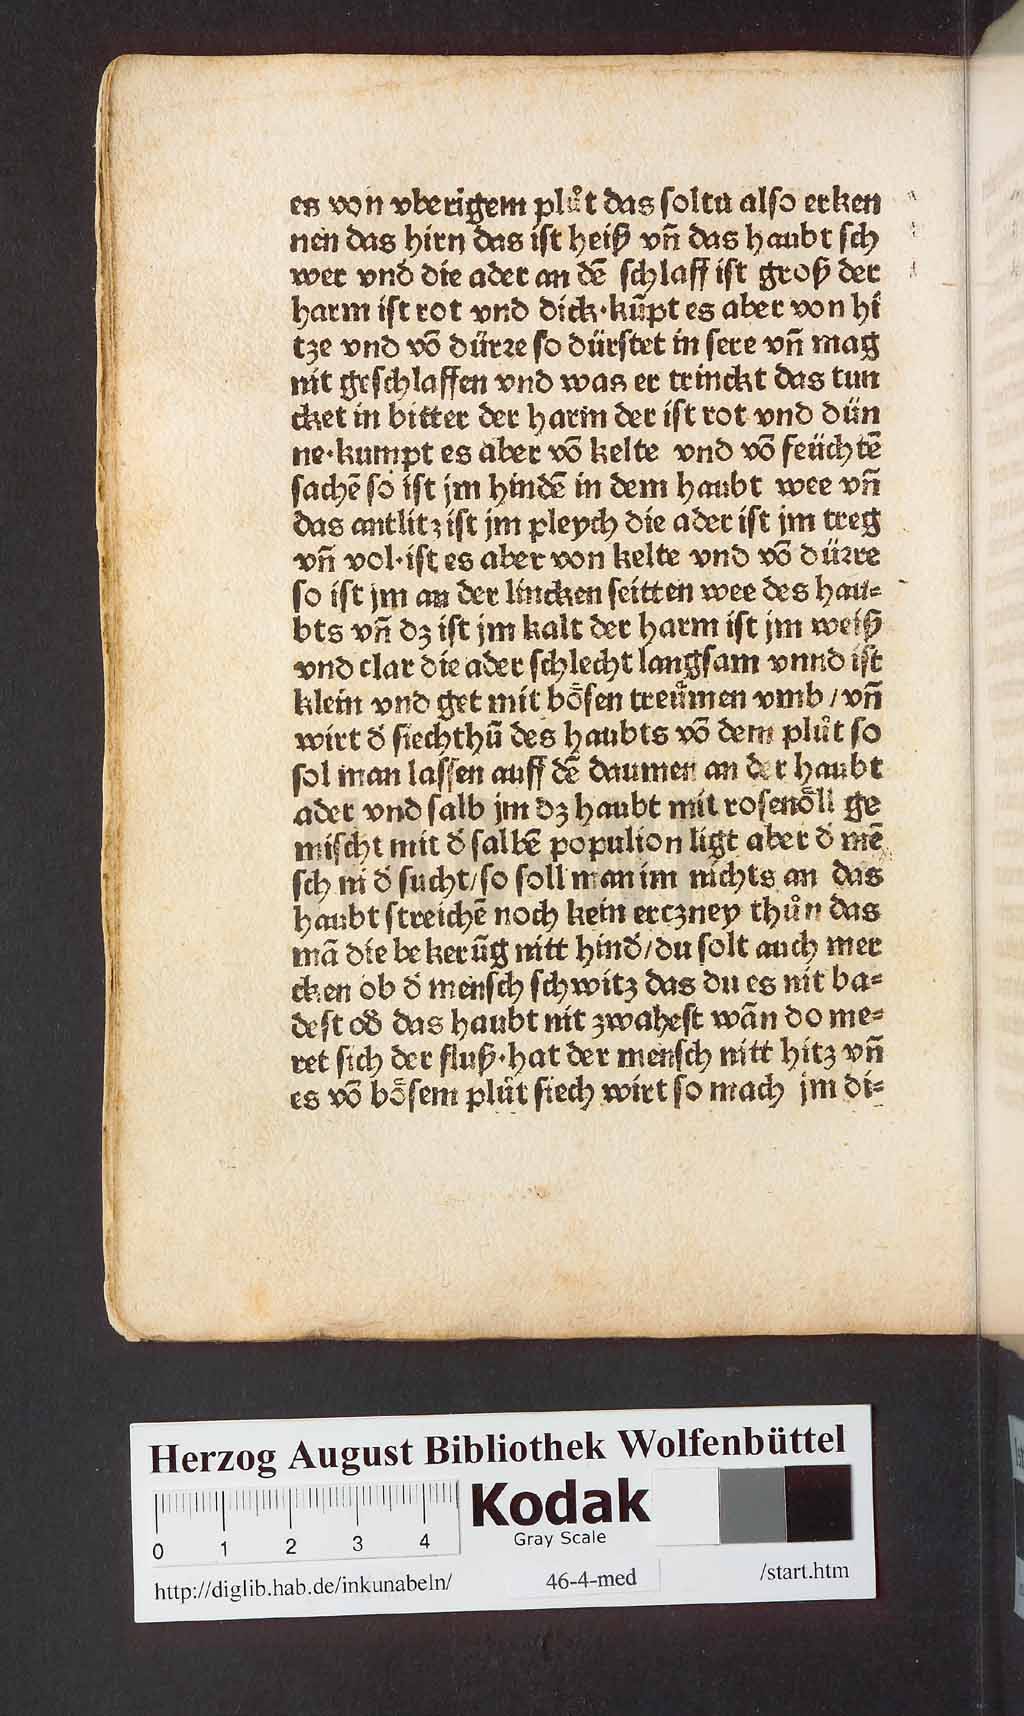 es von vberigem plůt das soltu also erken
nen das hirn das ist heiß vñ das haubt sch
wer vnd die ader an dē schlaff ist groß der
harm ist rot vnd dick·kūpt es aber von hi
tze vnd võ dürre so dürstet in sere vñ mag
nit geschlaffen vnd was er trinckt das tun
cket in bitter der harm der ist rot vnd dün
ne·kumpt es aber võ kelte vnd võ feüchtē
sachē so ist jm hindē in dem haubt wee vñ
das antlitz ist jm pleych die ader ist jm treg
vñ vol·ist es aber von kelte vnd võ dürre
so ist jm an der lincken seitten wee des hau=
bts vñ dz ist jm kalt der harm ist jm weiß
vnd clar die ader schlecht langsam vnnd ist
klein vnd get mit bösen treümen vmb/vñ
wirt d̄ siechthū des haubts võ dem plůt so
sol man lassen auff dē daumen an der haubt
ader vnd salb jm dz haubt mit rosenöll ge
mischt mit d̄ salbē populion ligt aber d̄ mē
sch in d̄ sucht/so soll man im nichts an das
haubt streichē noch kein ertzney thůn das
mā die bekerūg nitt hind̄/du solt auch mer
cken ob d̄ mensch schwitz das du es nit ba=
dest od̄ das haubt nit zwahest wān do me=
ret sich der fluß·hat der mensch nitt hitz vñ
es võ bösem plůt siech wirt so mach jm di=
Herzog August Bibliothek Wolfenbüttel
0 1 2 3 4
Kodak
Gray Scale
http://diglib.hab.de/inkunabeln/ 46-4-med /start.htm